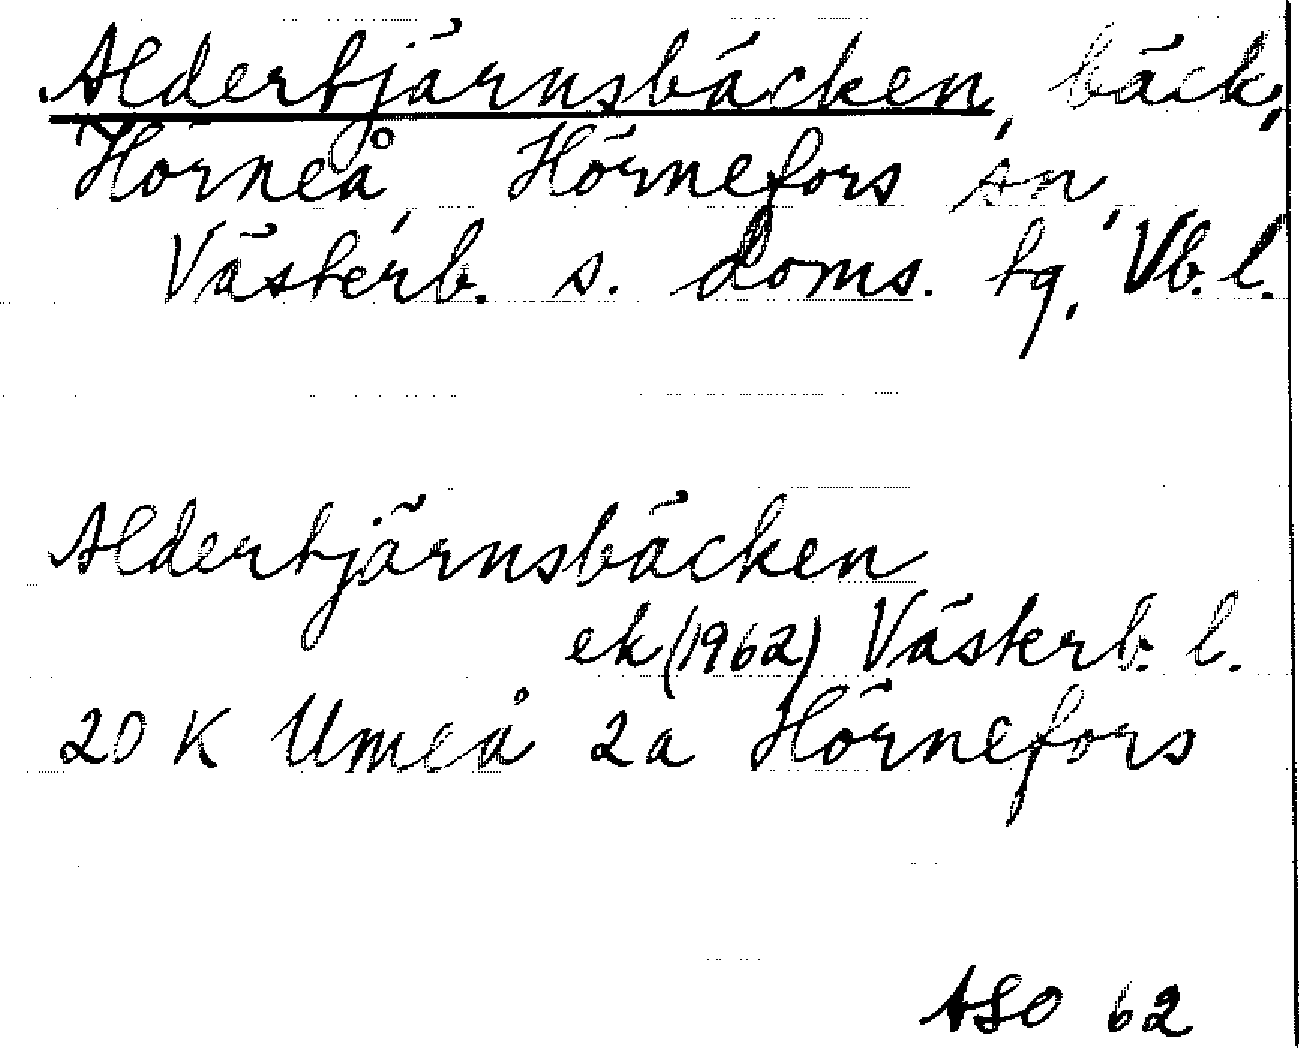 Aldertjärnsbäcken, bäck,
Hörneå, Hörnefors sn,
Västerb. s. doms. tg, Vb. l.
Aldertjärnsbäcken
ek (1962) Västerb. l.
20 K Umeå 2a Hörnefors
ASO 62